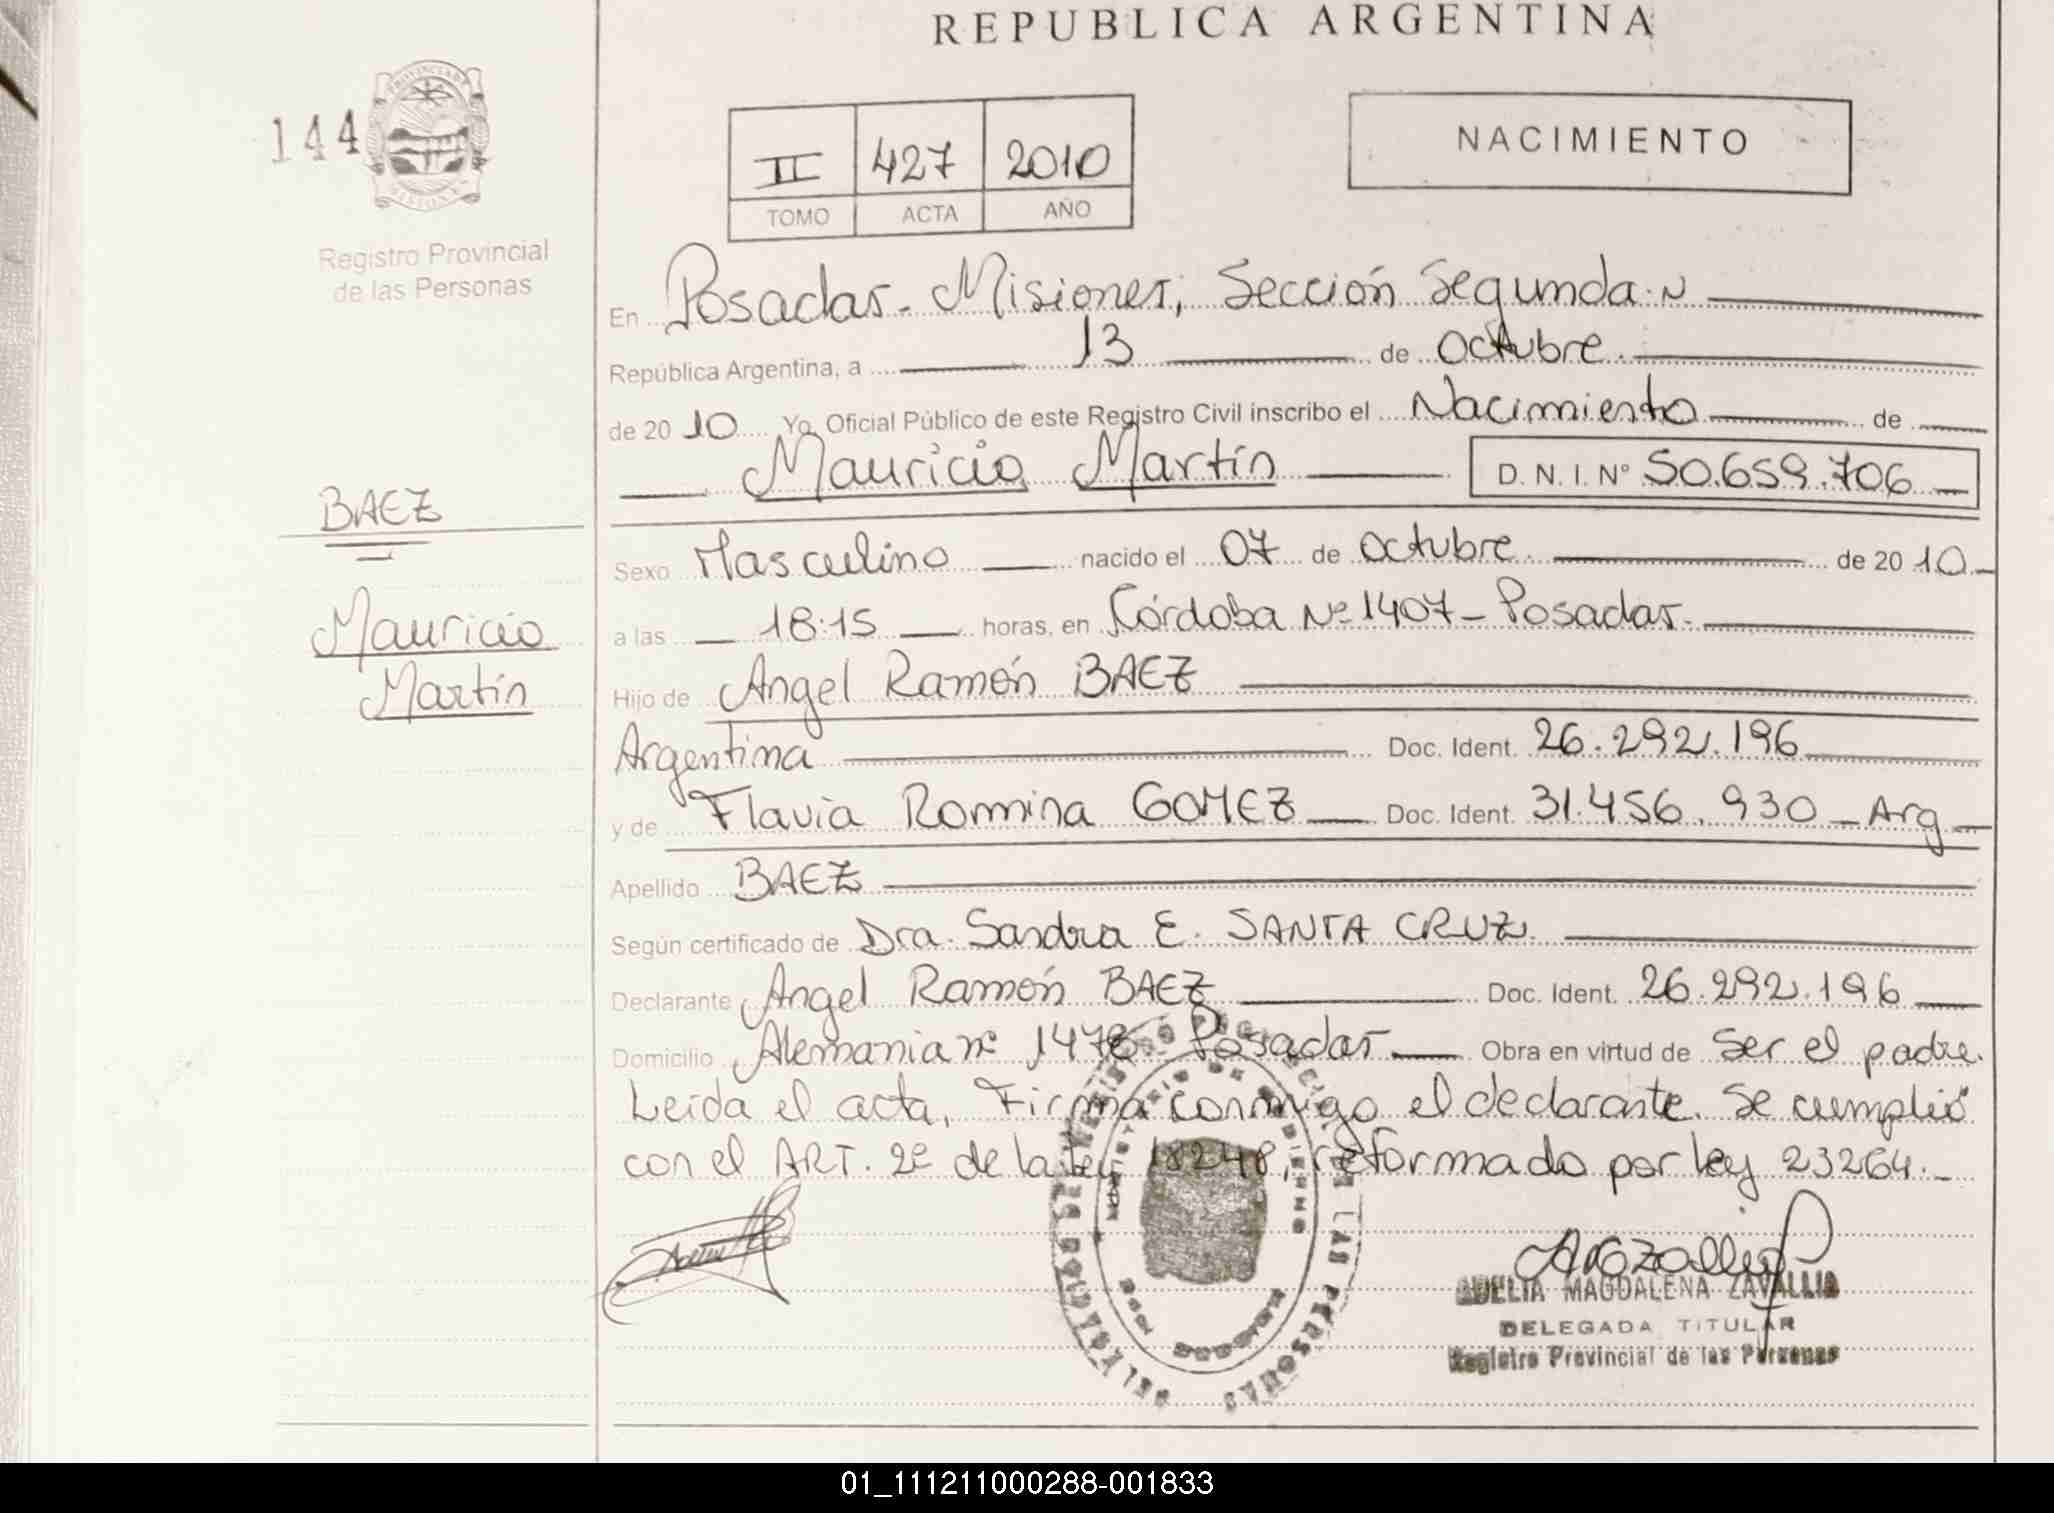 REPUBLICA ARGENTINA
144
Registro Provincial
de las Personas
II 427 2010
TOMO ACTA AÑO
NACIMIENTO
En Posadas - Misiones, Sección Segunda.
República Argentina, a 13 de Octubre
de 2010 Yo, Oficial Público de este Registro Civil inscribo el Nacimiento de
Mauricio Martín D.N.I. Nº 50.659.706
BAEZ
Mauricio
Martín
Sexo Masculino nacido el 07 de Octubre de 2010
a las 18:15 horas, en Córdoba Nº 1407 - Posadas.
Hijo de Angel Ramón BAEZ
Argentina Doc. Ident. 26.292.196
y de Flavia Romina GOMEZ Doc. Ident. 31.456.930 - Arg
Apellido BAEZ
Según certificado de Dra. Sandra E. SANTA CRUZ.
Declarante Angel Ramón BAEZ Doc. Ident. 26.292.196
Domicilio Alemania nº 1478 Posadas Obra en virtud de ser el padre.
Leída el acta, Firma conmigo el declarante. Se cumplió
con el ART. 2º de la Ley 18248, reformado por ley 23264.
ADELIA MAGDALENA ZAVALLIA
DELEGADA TITULAR
Registro Provincial de las Personas
01_111211000288-001833